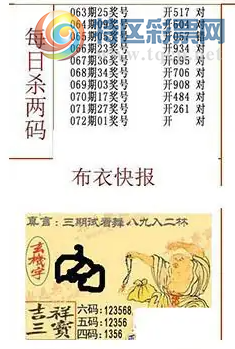 每日杀两码
063期25奖号 开517 对
065期
066期23奖号 开934 对
067期36奖号 开695 对
068期34奖号 开706 对
069期03奖号 开908 对
070期17奖号 开484 对
071期27奖号 开261 对
072期01奖号 开 对
布衣快报
真言：三期试看
八九入二林
吉祥
三宝
六码：123568
五码：12356
四码：1356